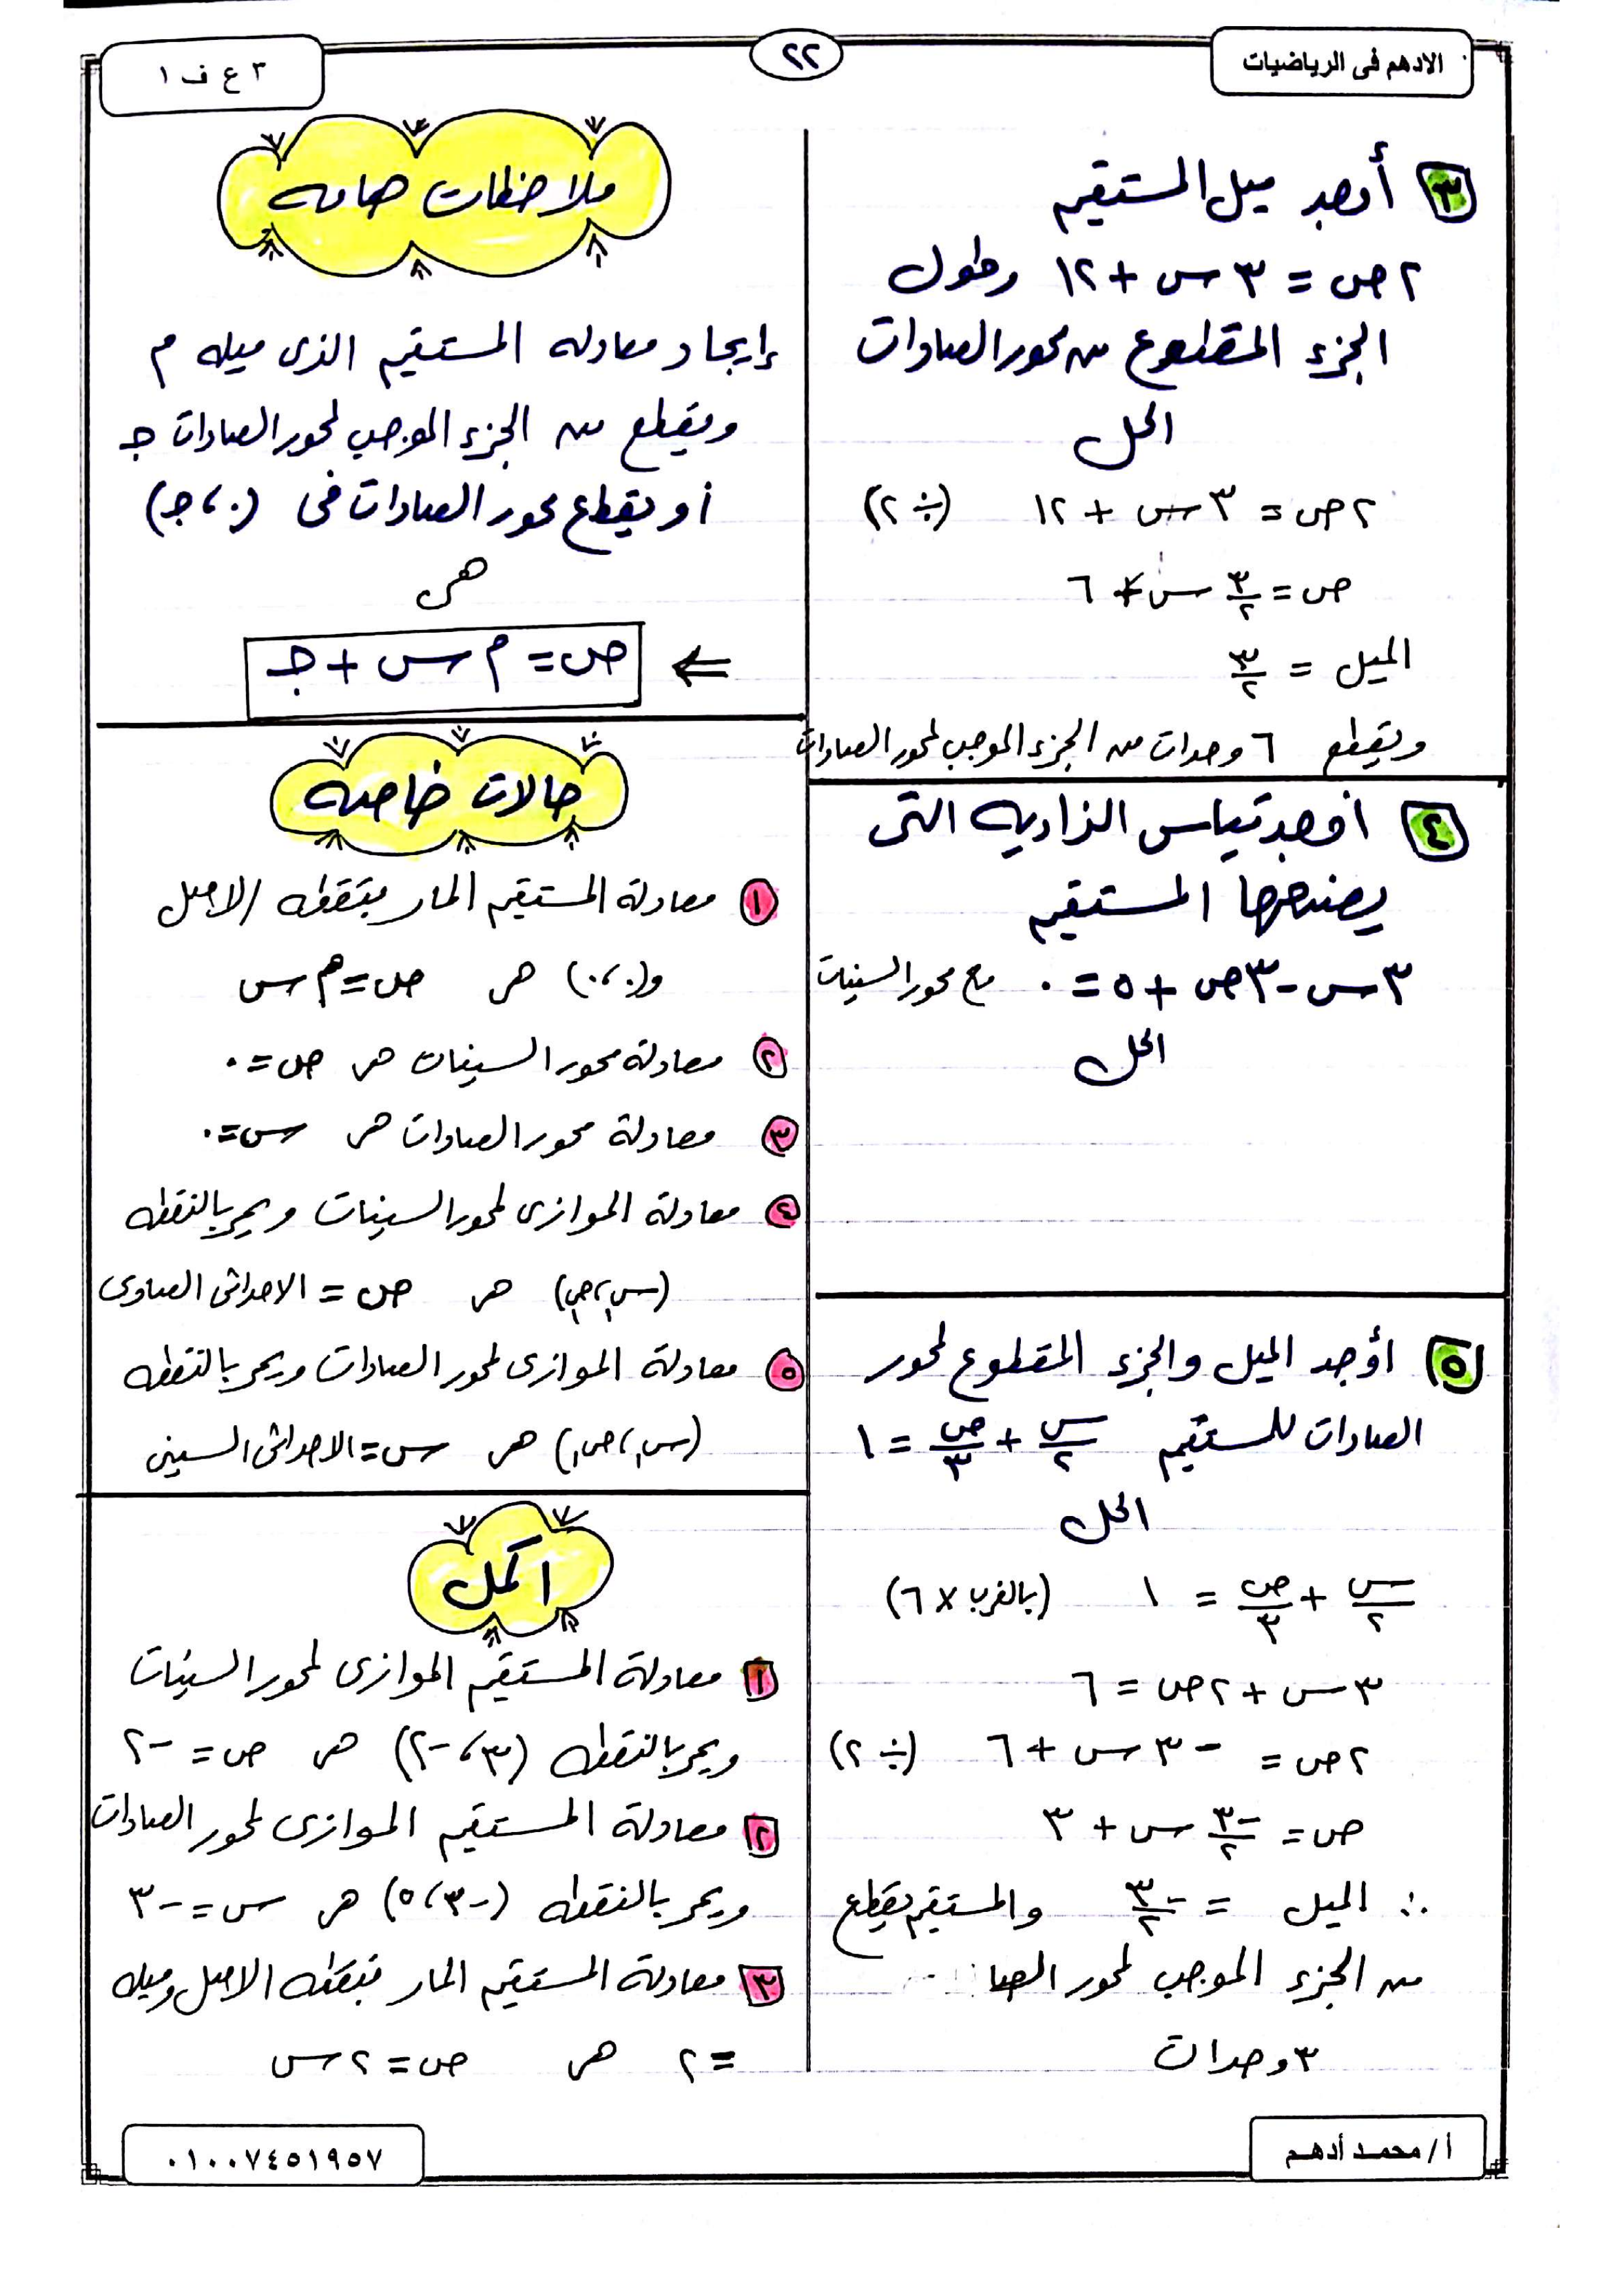 الادهم فى الرياضيات
٢٢
٣ ع ف ١
٣ أوجد ميل المستقيم
٢ص = ٣س + ١٢ وطول
الجزء المقطوع من محور الصادات
الحل
٢ص = ٣س + ١٢ (÷ ٢)
ص = ٣/٢ س + ٦
الميل = ٣/٢
ويقطع ٦ وحدات من الجزء الموجب لمحور الصادات
٤ أوجد قياس الزاوية التى
يصنعها المستقيم
٣س - ٣ص + ٥ = ٠ مع محور السينات
الحل
٥ أوجد الميل والجزء المقطوع لمحور
الصادات للمستقيم س/٢ + ص/٣ = ١
الحل
س/٢ + ص/٣ = ١ (بالضرب × ٦)
٣س + ٢ص = ٦
٢ص = -٣س + ٦ (÷ ٢)
ص = -٣/٢ س + ٣
∴ الميل = -٣/٢ والمستقيم يقطع
من الجزء الموجب لمحور الصا
٣ وحدات
ملاحظات هامه
إيجاد معادله المستقيم الذى ميله م
ويقطع من الجزء الموجب لمحور الصادات جـ
أو يقطع محور الصادات فى (٠، جـ)
هى
⇐ ص = م س + جـ
حالات خاصه
١ معادلة المستقيم المار بنقطه الاصل
و(٠،٠) هى ص = م س
٢ معادلة محور السينات هى ص = ٠
٣ معادلة محور الصادات هى س = ٠
٤ معادلة الموازى لمحور السينات ويمر بالنقطه
(س١، ص١) هى ص = الاحداثى الصادى
٥ معادلة الموازى لمحور الصادات ويمر بالنقطه
(س١، ص١) هى س = الاحداثى السينى
اكمل
١ معادلة المستقيم الموازى لمحور السينات
ويمر بالنقطه (٣، -٢) هى ص = -٢
٢ معادلة المستقيم الموازى لمحور الصادات
ويمر بالنقطه (-٣، ٥) هى س = -٣
٣ معادلة المستقيم المار بنقطه الاصل وميله
= ٢ هى ص = ٢س
أ/ محمد أدهم
٠١٠٠٧٤٥١٩٥٧